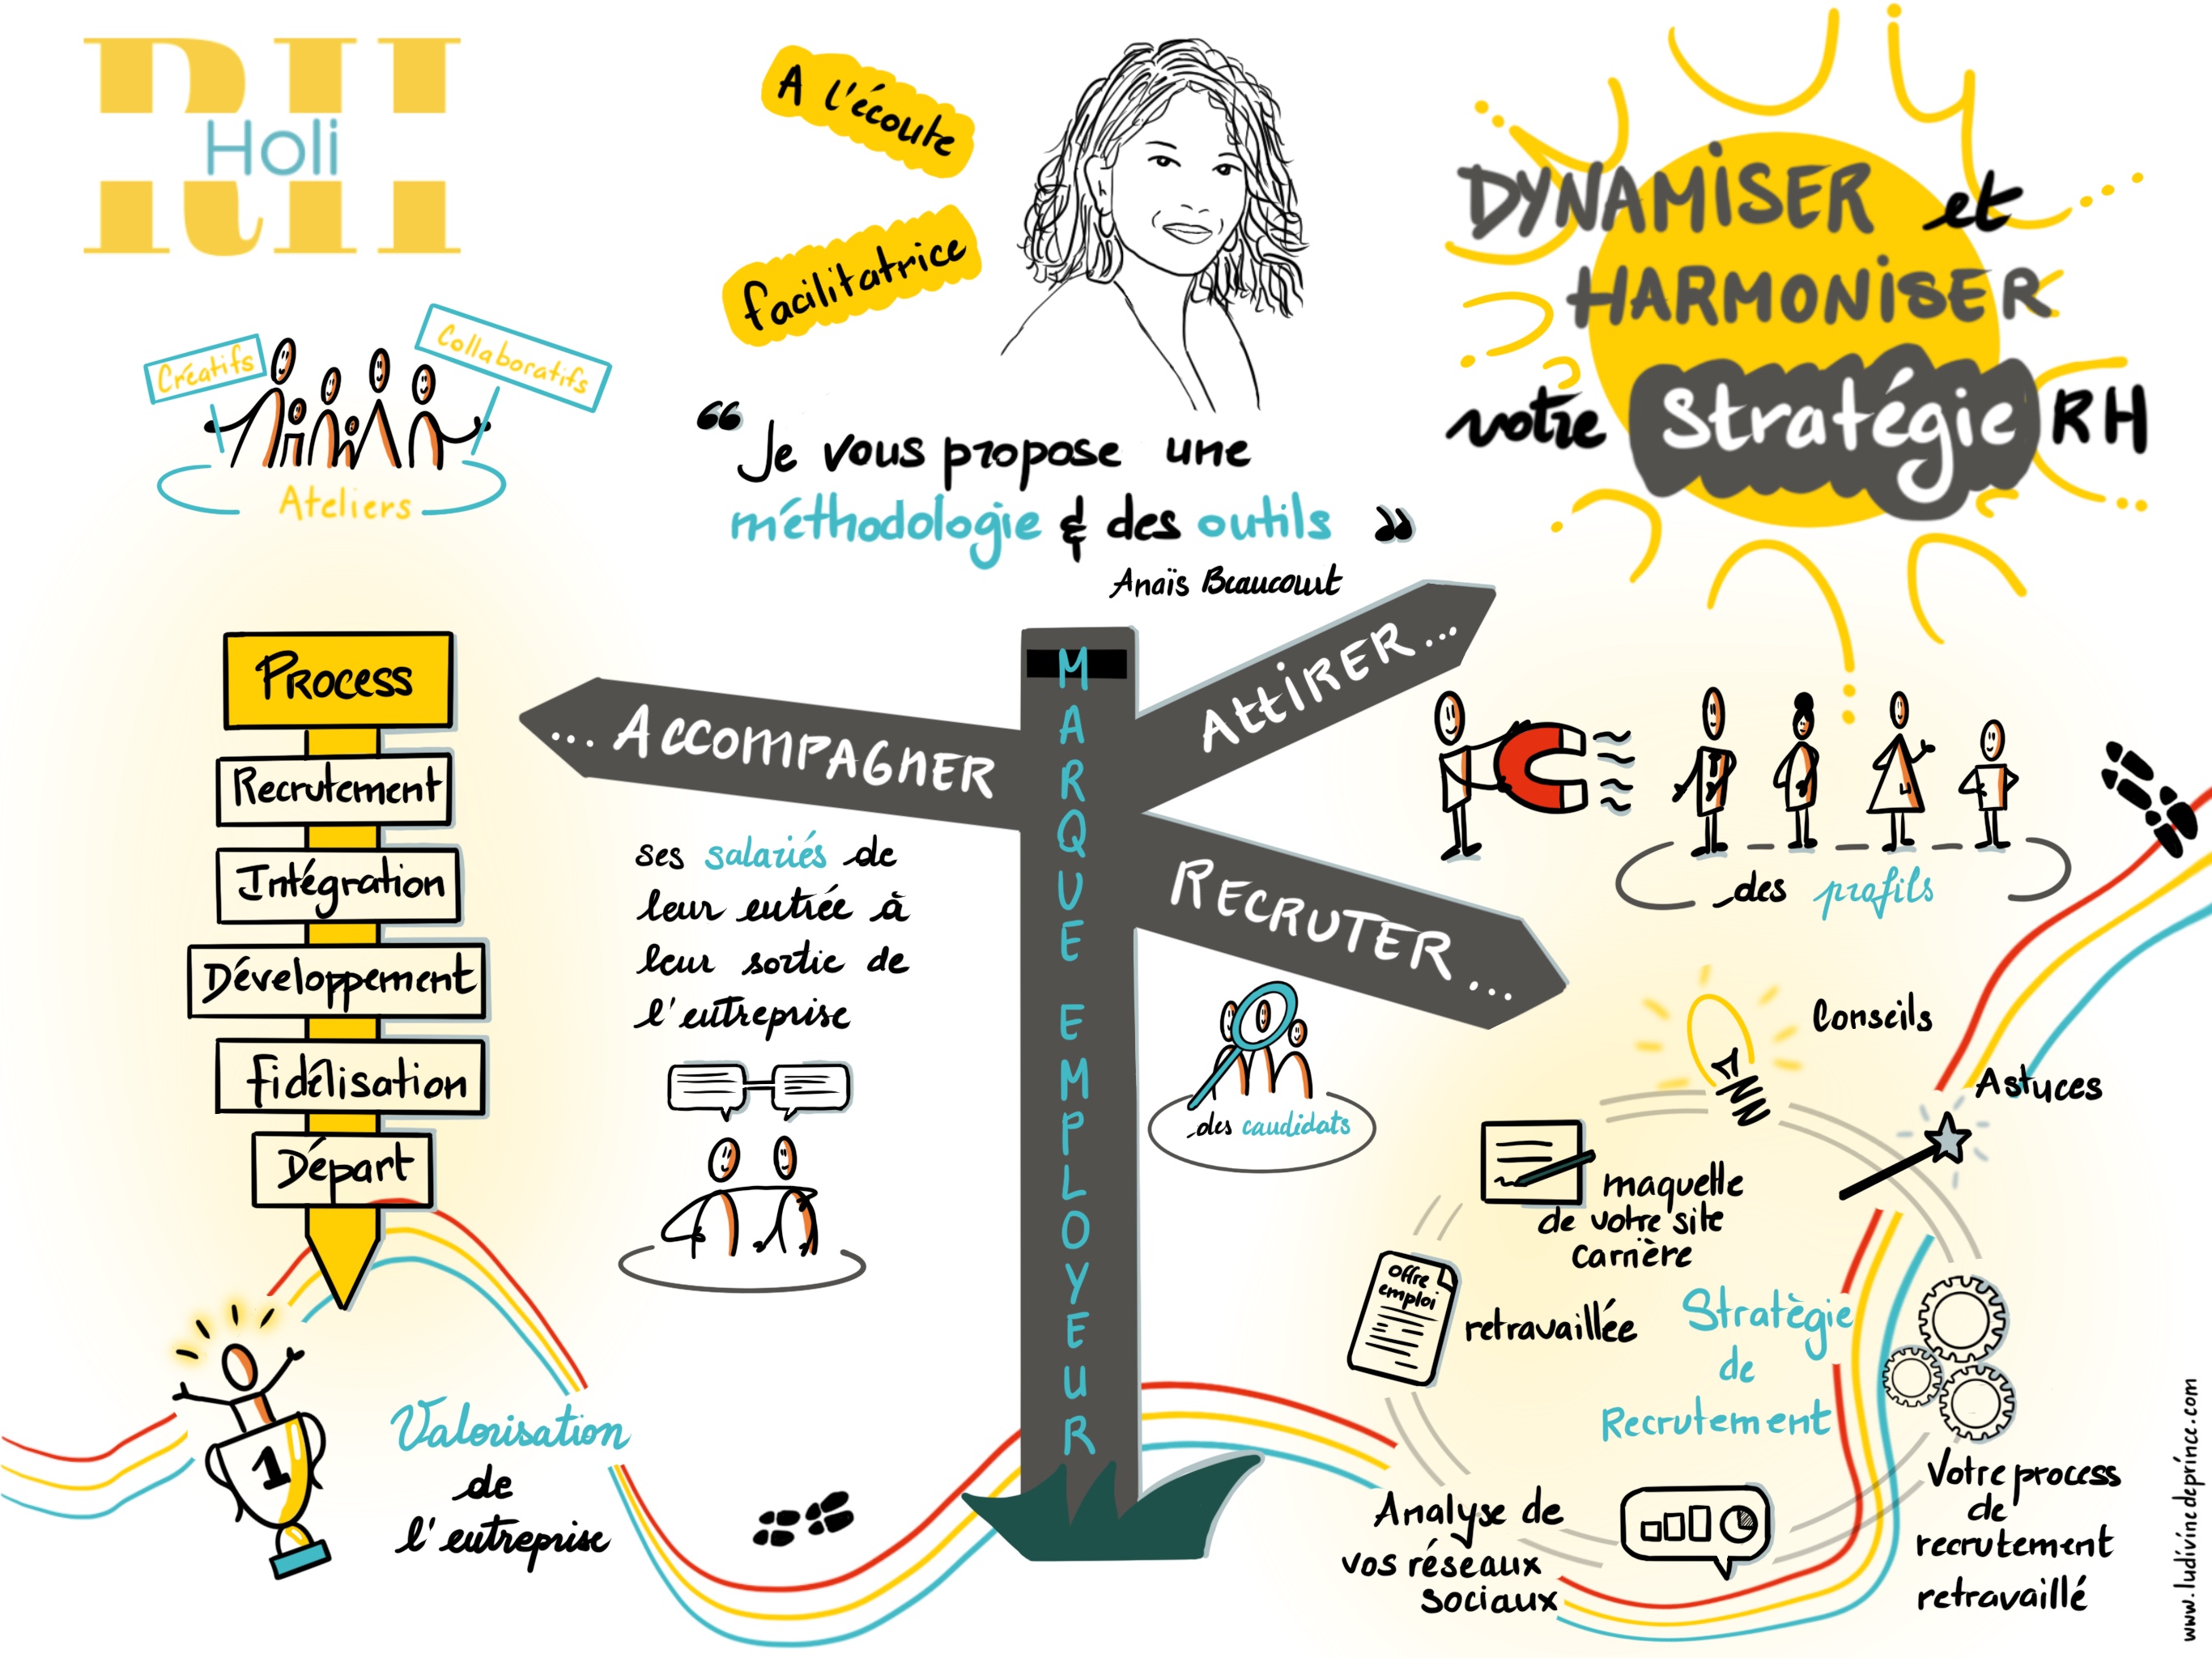 RH
Holi
A l'écoute
facilitatrice
DYNAMISER et
HARMONISER
votre Stratégie RH
Créatifs
Collaboratifs
Ateliers
“ Je vous propose une
méthodologie & des outils ”
Anaïs Beaucourt
PROCESS
Recrutement
Intégration
Développement
Fidélisation
Départ
MARQUE EMPLOYEUR
... ACCOMPAGNER
ses salariés de
leur entrée à
leur sortie de
l'entreprise
ATTIRER...
des profils
RECRUTER...
des candidats
Conseils
Astuces
maquette
de votre site
carrière
Offre
emploi
retravaillée
Stratègie
de
Recrutement
Analyse de
vos réseaux
sociaux
Votre process
de
recrutement
retravaillé
1
Valorisation
de
l'entreprise
www.ludivinedeprince.com